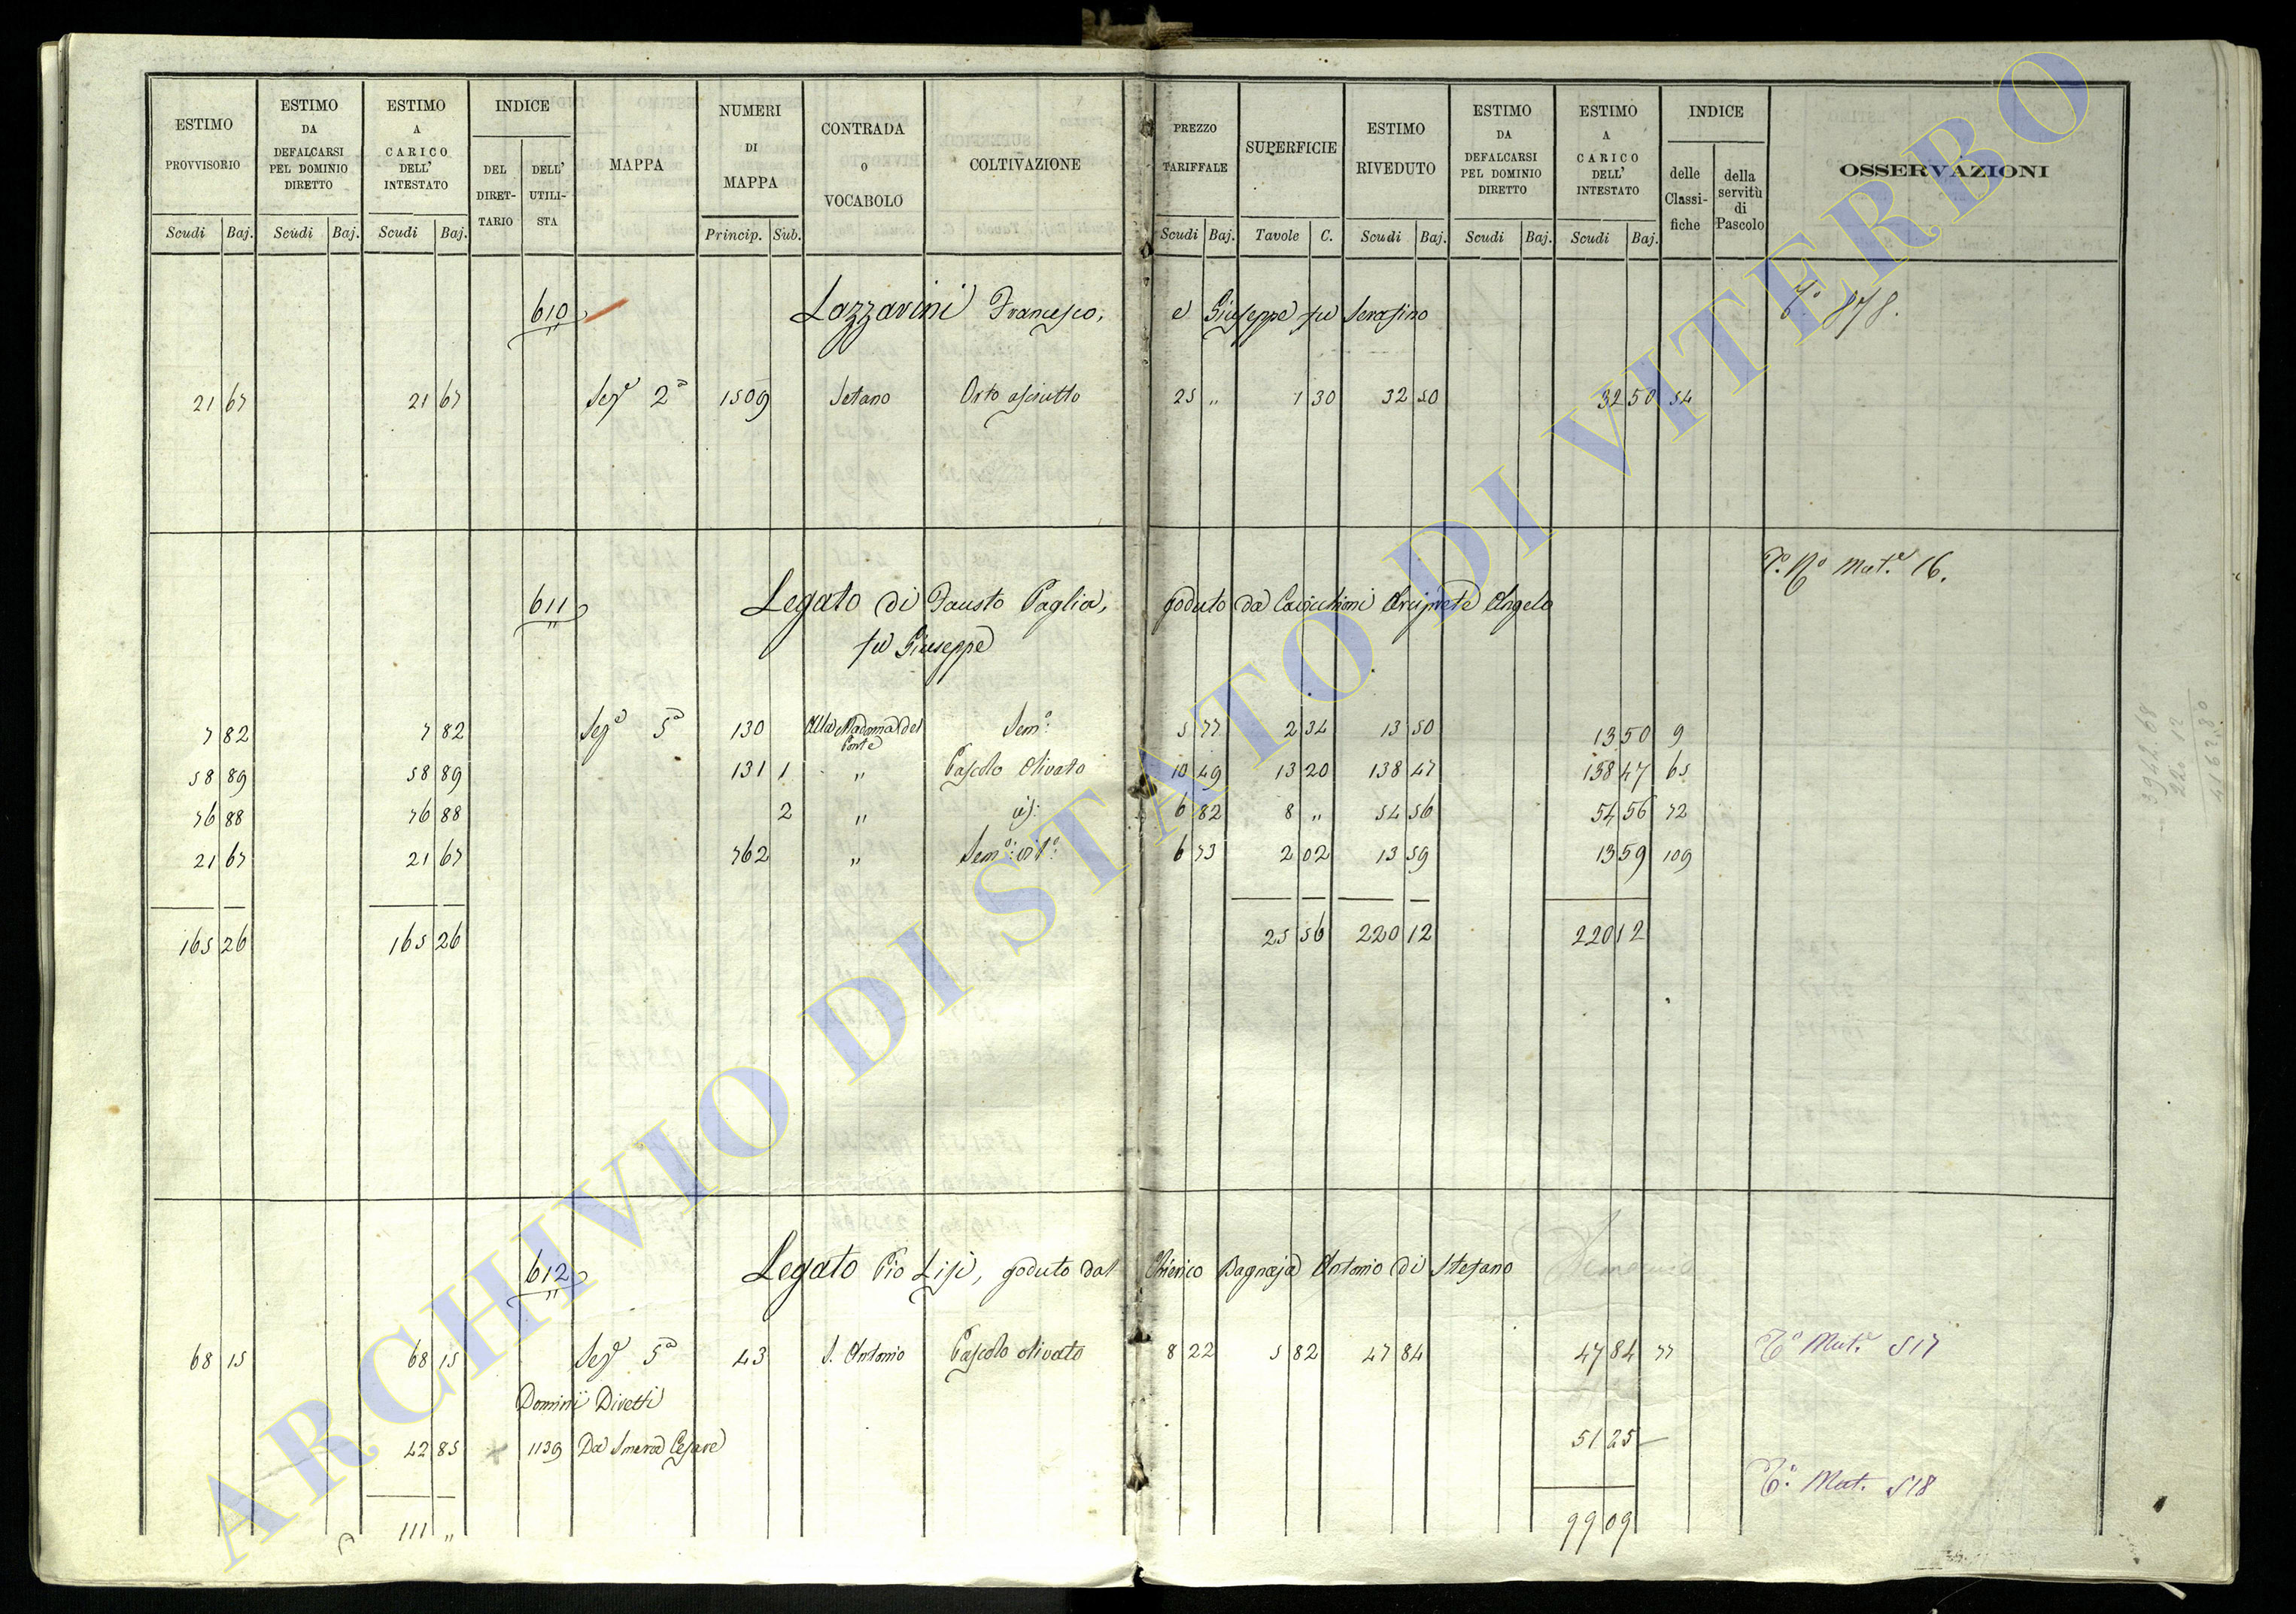 ESTIMO PROVVISORIO Scudi Baj. ESTIMO DA DEFALCARSI PEL DOMINIO DIRETTO Scudi Baj. ESTIMO A CARICO DELL' INTESTATO Scudi Baj. INDICE DEL DIRET-TARIO DELL' UTILI-STA MAPPA NUMERI DI MAPPA Princip. Sub. CONTRADA O VOCABOLO COLTIVAZIONE PREZZO TARIFFALE Scudi Baj. SUPERFICIE Tavole C. ESTIMO RIVEDUTO Scudi Baj. ESTIMO DA DEFALCARSI PEL DOMINIO DIRETTO Scudi Baj. ESTIMO A CARICO DELL' INTESTATO Scudi Baj. INDICE delle Classi-fiche della servitù di Pascolo OSSERVAZIONI
610 Lazzarini Francesco, e Giuseppe fu Serafino T.° 878.
21 67 21 67 Sez.e 2a 1509 Setano Orto asciutto 25 " 1 30 32 50 32 50 54
T.° N.° Mat.e 16.
611 Legato di Fausto Paglia, goduto da Cavicchioni Arciprete Angelo
fu Giuseppe
7 82 7 82 Sez.e 5a 130 Alla Madonna del Ponte Sem.° 5 77 2 34 13 50 13 50 9
58 89 58 89 131 1 " Pascolo Olivato 10 49 13 20 138 47 138 47 65
76 88 76 88 2 " id. 6 82 8 " 54 56 54 56 72
21 67 21 67 762 " Sem.° vit.° 6 73 2 02 13 59 13 59 109
165 26 165 26 25 56 220 12 220 12
3942.68
220 12
4162.80
612 Legato Pio Lisi, goduto dal Chierico Bagnaja Antonio di Stefano Demanio
68 15 68 15 Sez.e 5a 43 S. Antonio Pascolo olivato 8 22 5 82 47 84 47 84 77 T.° Mat.e 517
Dominii Diretti
42 85 1139 Da Cesare 51 25
T.° Mat. 518
111 " 99 09
ARCHIVIO DI STATO DI VITERBO